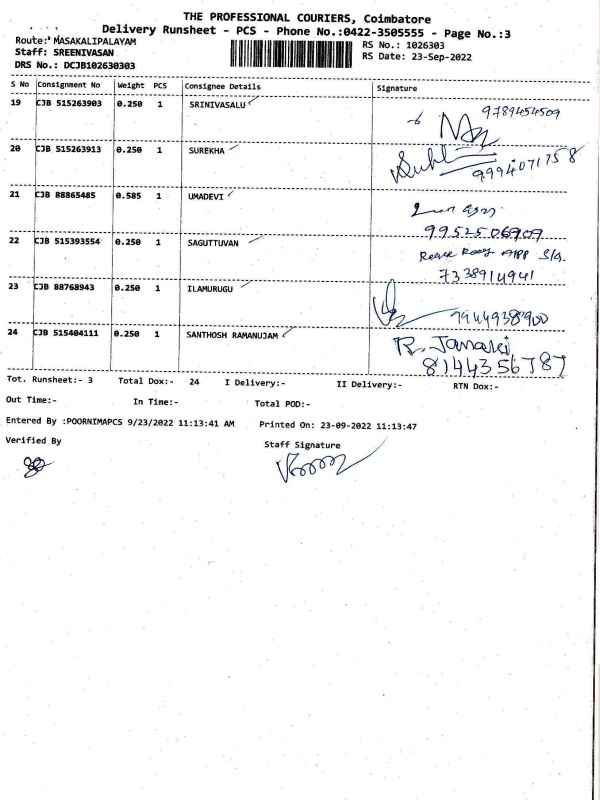 THE PROFESSIONAL COURIERS, Coimbatore
Delivery Runsheet - PCS - Phone No.:0422-3505555 - Page No.:3
Route: MASAKALIPALAYAM
RS No.: 1026303
Staff: SREENIVASAN
RS Date: 23-Sep-2022
DRS No.: DCJB102630303
S No Consignment No Weight PCS Consignee Details Signature
19 CJB 515263903 0.250 1 SRINIVASALU 9789454509
20 CJB 515263913 0.250 1 SUREKHA 9994071758
21 CJB 88865485 0.585 1 UMADEVI
9952506909
22 CJB 515393554 0.250 1 SAGUTTUVAN
7338914941
23 CJB 88768943 0.250 1 ILAMURUGU
7944938900
24 CJB 515404111 0.250 1 SANTHOSH RAMANUJAM R. Janaki
8144356787
Tot. Runsheet:- 3 Total Dox:- 24 I Delivery:- II Delivery:- RTN Dox:-
Out Time:- In Time:- Total POD:-
Entered By :POORNIMAPCS 9/23/2022 11:13:41 AM Printed On: 23-09-2022 11:13:47
Verified By Staff Signature